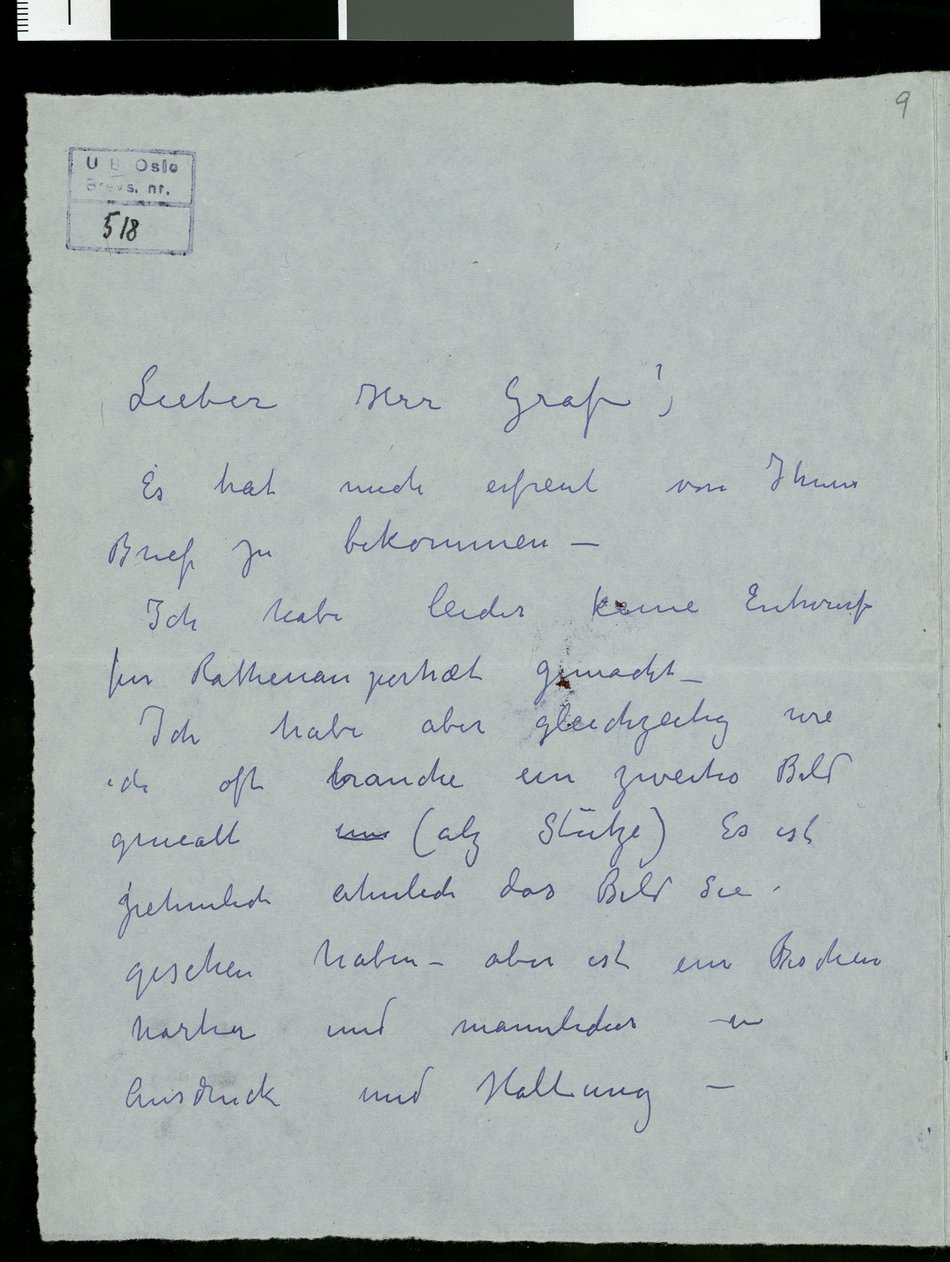 9
U B Oslo
Brevs. nr.
518
Lieber Herr Graf!
Es hat mich erfreut von Ihnen
Brief zu bekommen –
Ich habe leider keine Entwurf
für Rathenauportræt gemacht –
Ich habe aber gleichzeitig wie
ich oft brauche ein zweites Bild
gemalt (als Stütze) Es ist
ziehmlich ehnlich das Bild Sie
gesehen haben – aber ist ein Bischen
harter und mannlicher in
Ausdruck und Haltung –